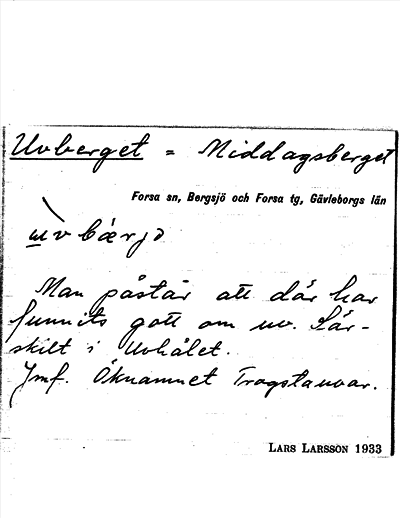 Uvberget = Middagsberget
Forsa sn, Bergsjö och Forsa tg, Gävleborgs län
ɯ̀v bærjə
Man påstår att där har
funnits gott om uv. Sär-
skilt i Uvhålet.
Jmf. Öknamnet Trogstauvar.
LARS LARSSON 1933